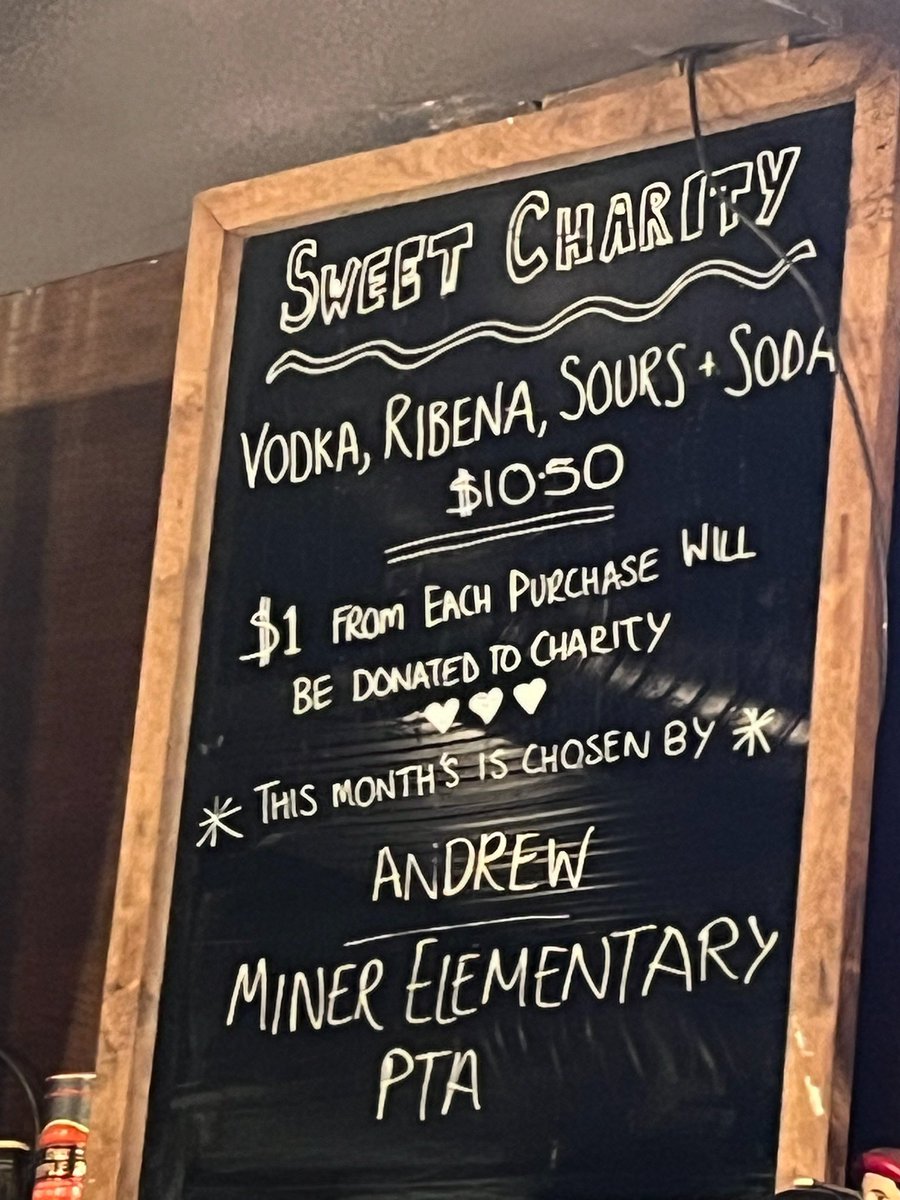 SWEET CHARITY
VODKA, RIBENA, SOURS + SODA
$10.50
$1 FROM EACH PURCHASE WILL
BE DONATED TO CHARITY
* THIS MONTH'S IS CHOSEN BY *
ANDREW
MINER ELEMENTARY
PTA